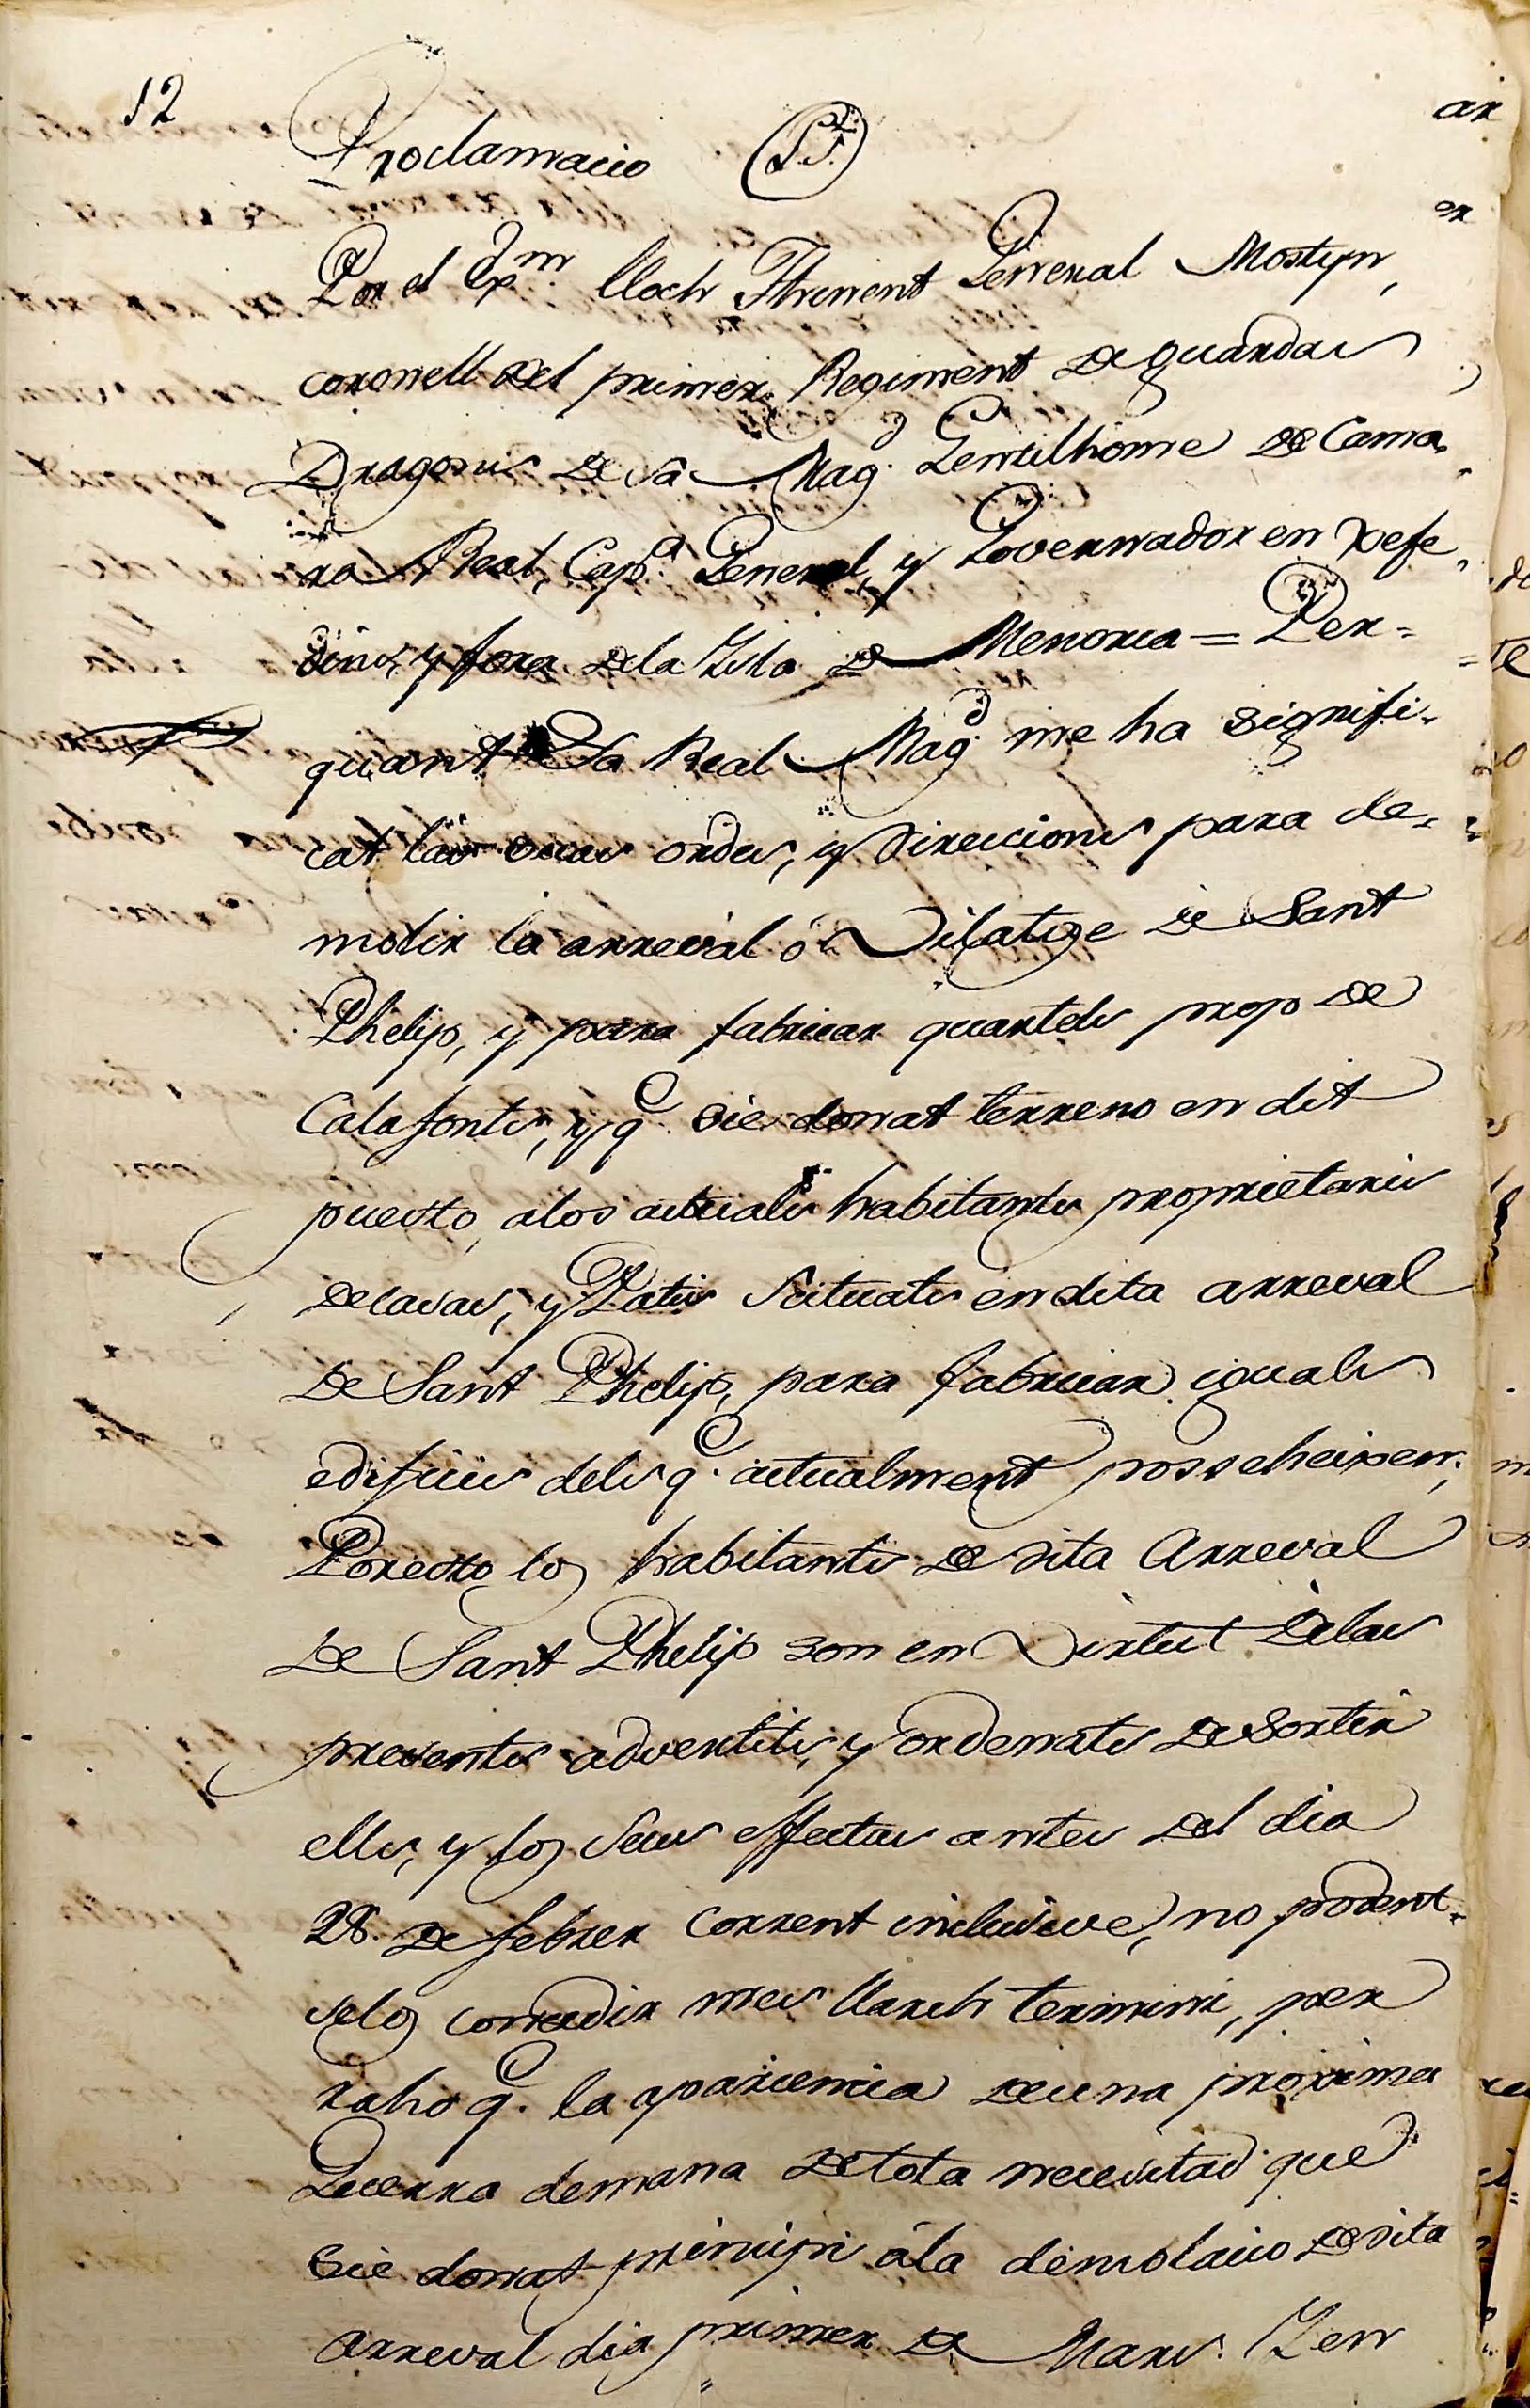 12
Proclamacio
Por el Exm. lloch Thinent General Mostyn,
coronell del primer Regiment de guardas
Dragons de Sa Magd. Gentilhome de Cama-
ra Real, Capn. General, y Governador en xefe
dins, y fora dela Isla de Menorca = Per=
quant Sa Real Magd. me ha signifi-
cat las suas ordes, y direccions para de-
molir la arreval ó Vilatge de Sant
Phelip, y para fabricar quartels prop de
Calafonts, y q. sie donat terreno en dit
puesto, alos actuals habitants proprietaris
decasas, y Patis scituats en dita arreval
de Sant Phelip, para fabricar iguals
edificis dels q. actualment posseheixen;
Poresto los habitants de dita Arreval
de Sant Phelip son en Virtut delas
presents advertits, y ordenats desortir
ells, y los Seus effectas antes del dia
28. de febrer corrent inclusive, no podent-
selos concedir mes llarch termini, per
raho q. la apariencia deuna proxima
Guerra demana detota necessitad que
sie donat principi ála demolacio dedita
Arreval dia primer de Mars. Gen